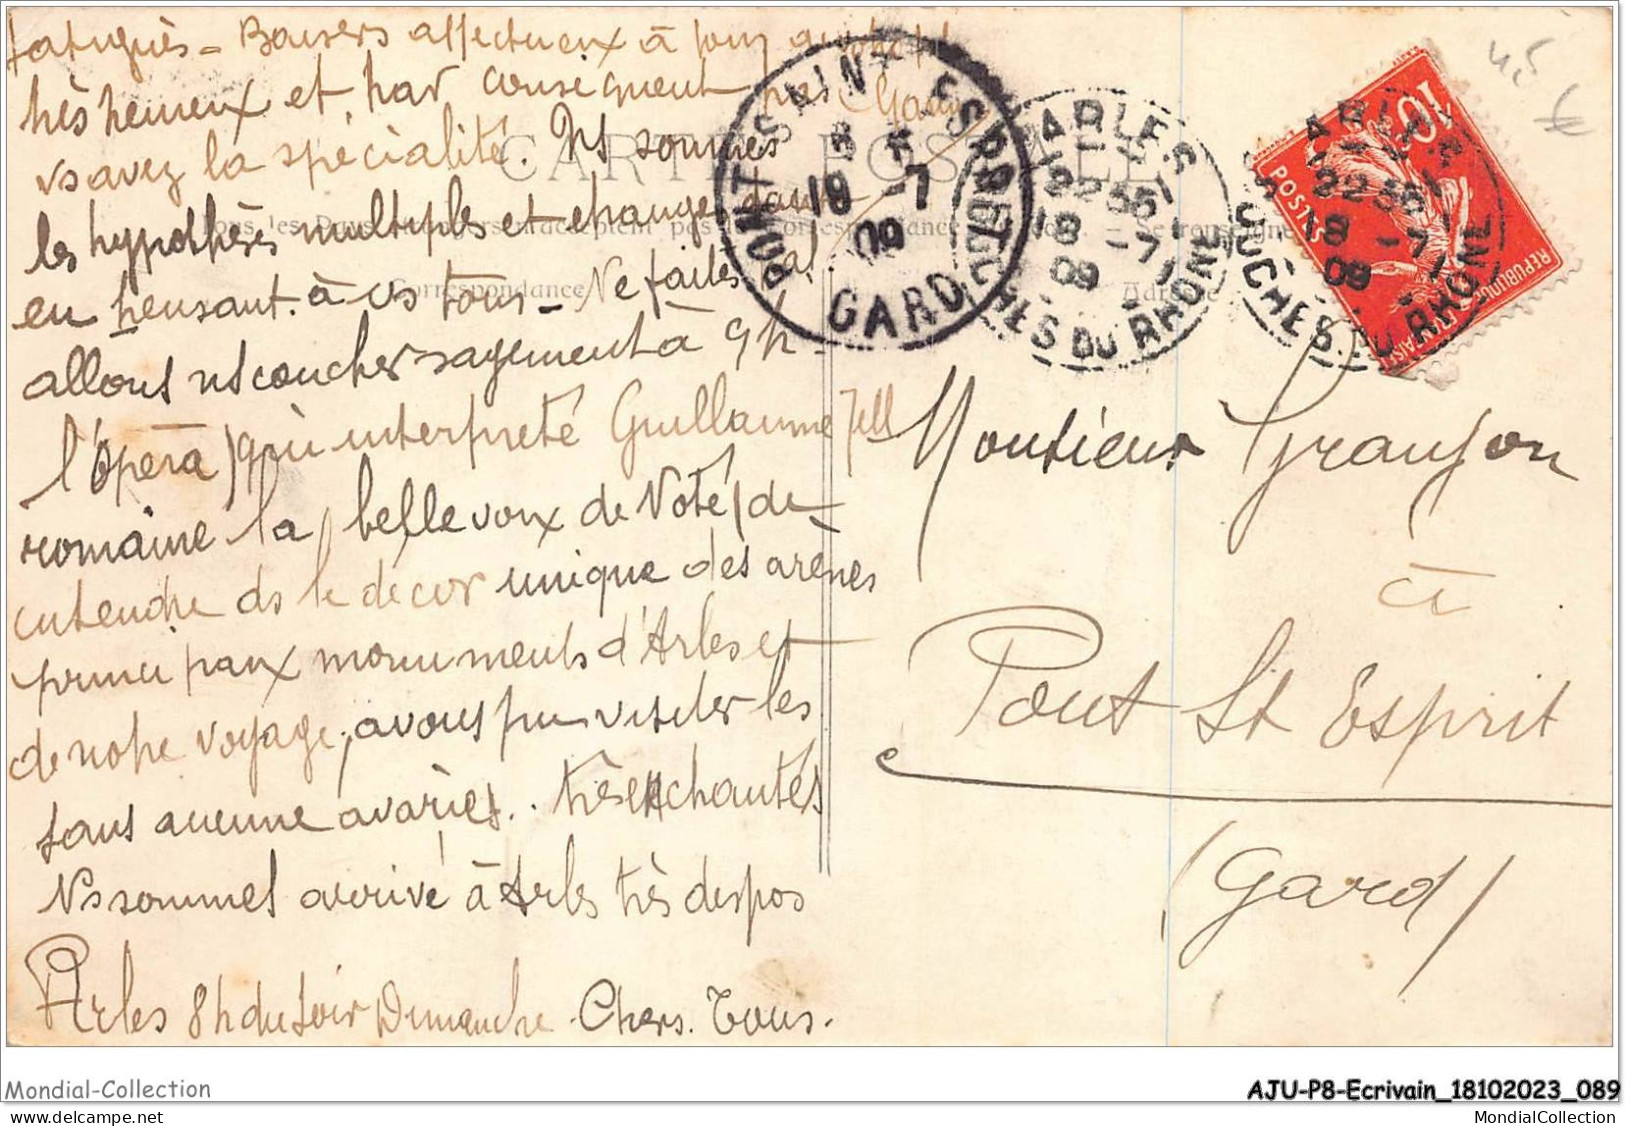 fatigués - Baisers affectueux à tous
très heureux et par conséquent pas
vs avez la spécialité. Ns sommes
les hypothèses multiples et changes dans
en pensant à vs tous - Ne faites pas
allons ns coucher sagement à 9h -
l'opéra) qui interprete Guillaume Tell
romaine la belle voix de Noté (de
entendre ds le décor unique des arènes
principaux monuments d'Arles et
de notre voyage, avons pu visiter les
sans aucune avaries. très enchantés
Ns sommes arrivé à Arles très dispos
Arles 8h du soir Dimanche. Chers Tous.
CARTE POSTALE
Correspondance
Adresse
PONT-SAINT-ESPRIT
19 -7
09
GARD
ARLES
18 -7
09
BOUCHES DU RHONE
ARLES
18 -7
09
BOUCHES DU RHONE
10
POSTES
REPUBLIQUE FRANÇAISE
45 €
Monsieur Granjon
à
Pont St Esprit
(Gard)
Mondial-Collection
AJU-P8-Ecrivain_18102023_089
MondialCollection